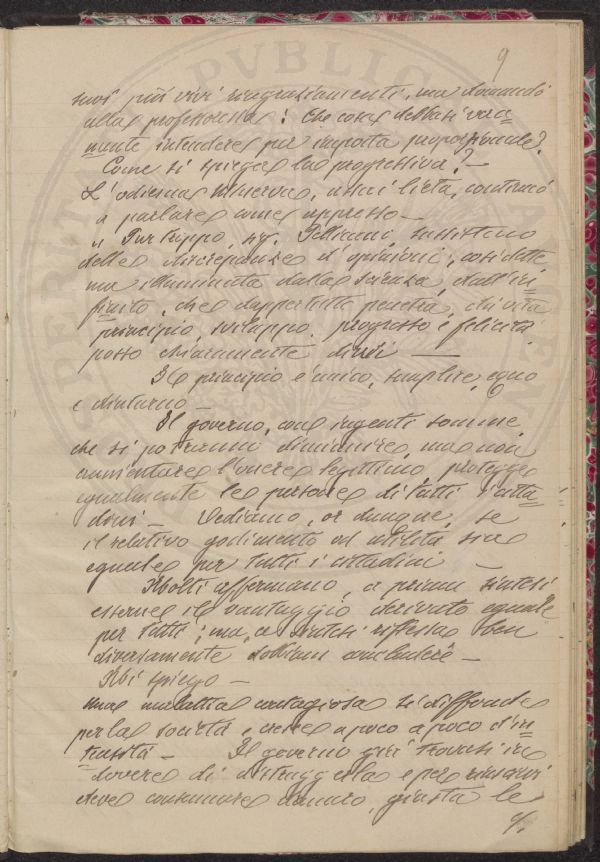 9
suoi più vivi ringraziamenti, ma domandò
alla professoressa: Che cosa debbasi vera-
mente intendere per imposta proporzionale?
Come si spiega la progressiva? —
L'odierna Minerva, assai lieta, continuò
a parlare come appresso —
« Purtroppo, sig. Pelliconi, sussistono
delle discrepanze d'opinioni, così dette
ma illuminata dalla scienza, dall'in-
finito, che dappertutto penetra, dà vita
principio, sviluppo, progresso e felicità
posso chiaramente dirvi —
Il principio è unico, semplice, equo
e diuturno —
Il governo, con ingenti somme,
che si potranno diminuire, ma non
aumentare l'onere legittimo, protegge
egualmente le persone di tutti i citta-
dini — Vediamo, or dunque, se
il relativo godimento ed utilità sia
eguale per tutti i cittadini —
Molti affermano, a prima sintesi
essere il vantaggio derivato eguale
per tutti; ma, a sintesi riflessa ben
diversamente dobbiam concludere —
Mi spiego —
Una malattia contagiosa si diffonde
per la società e cresce a poco a poco d'in-
tensità — Il governo quì trovasi in
dovere di distruggerla e per riuscirvi
deve consumare danaro, giusta le